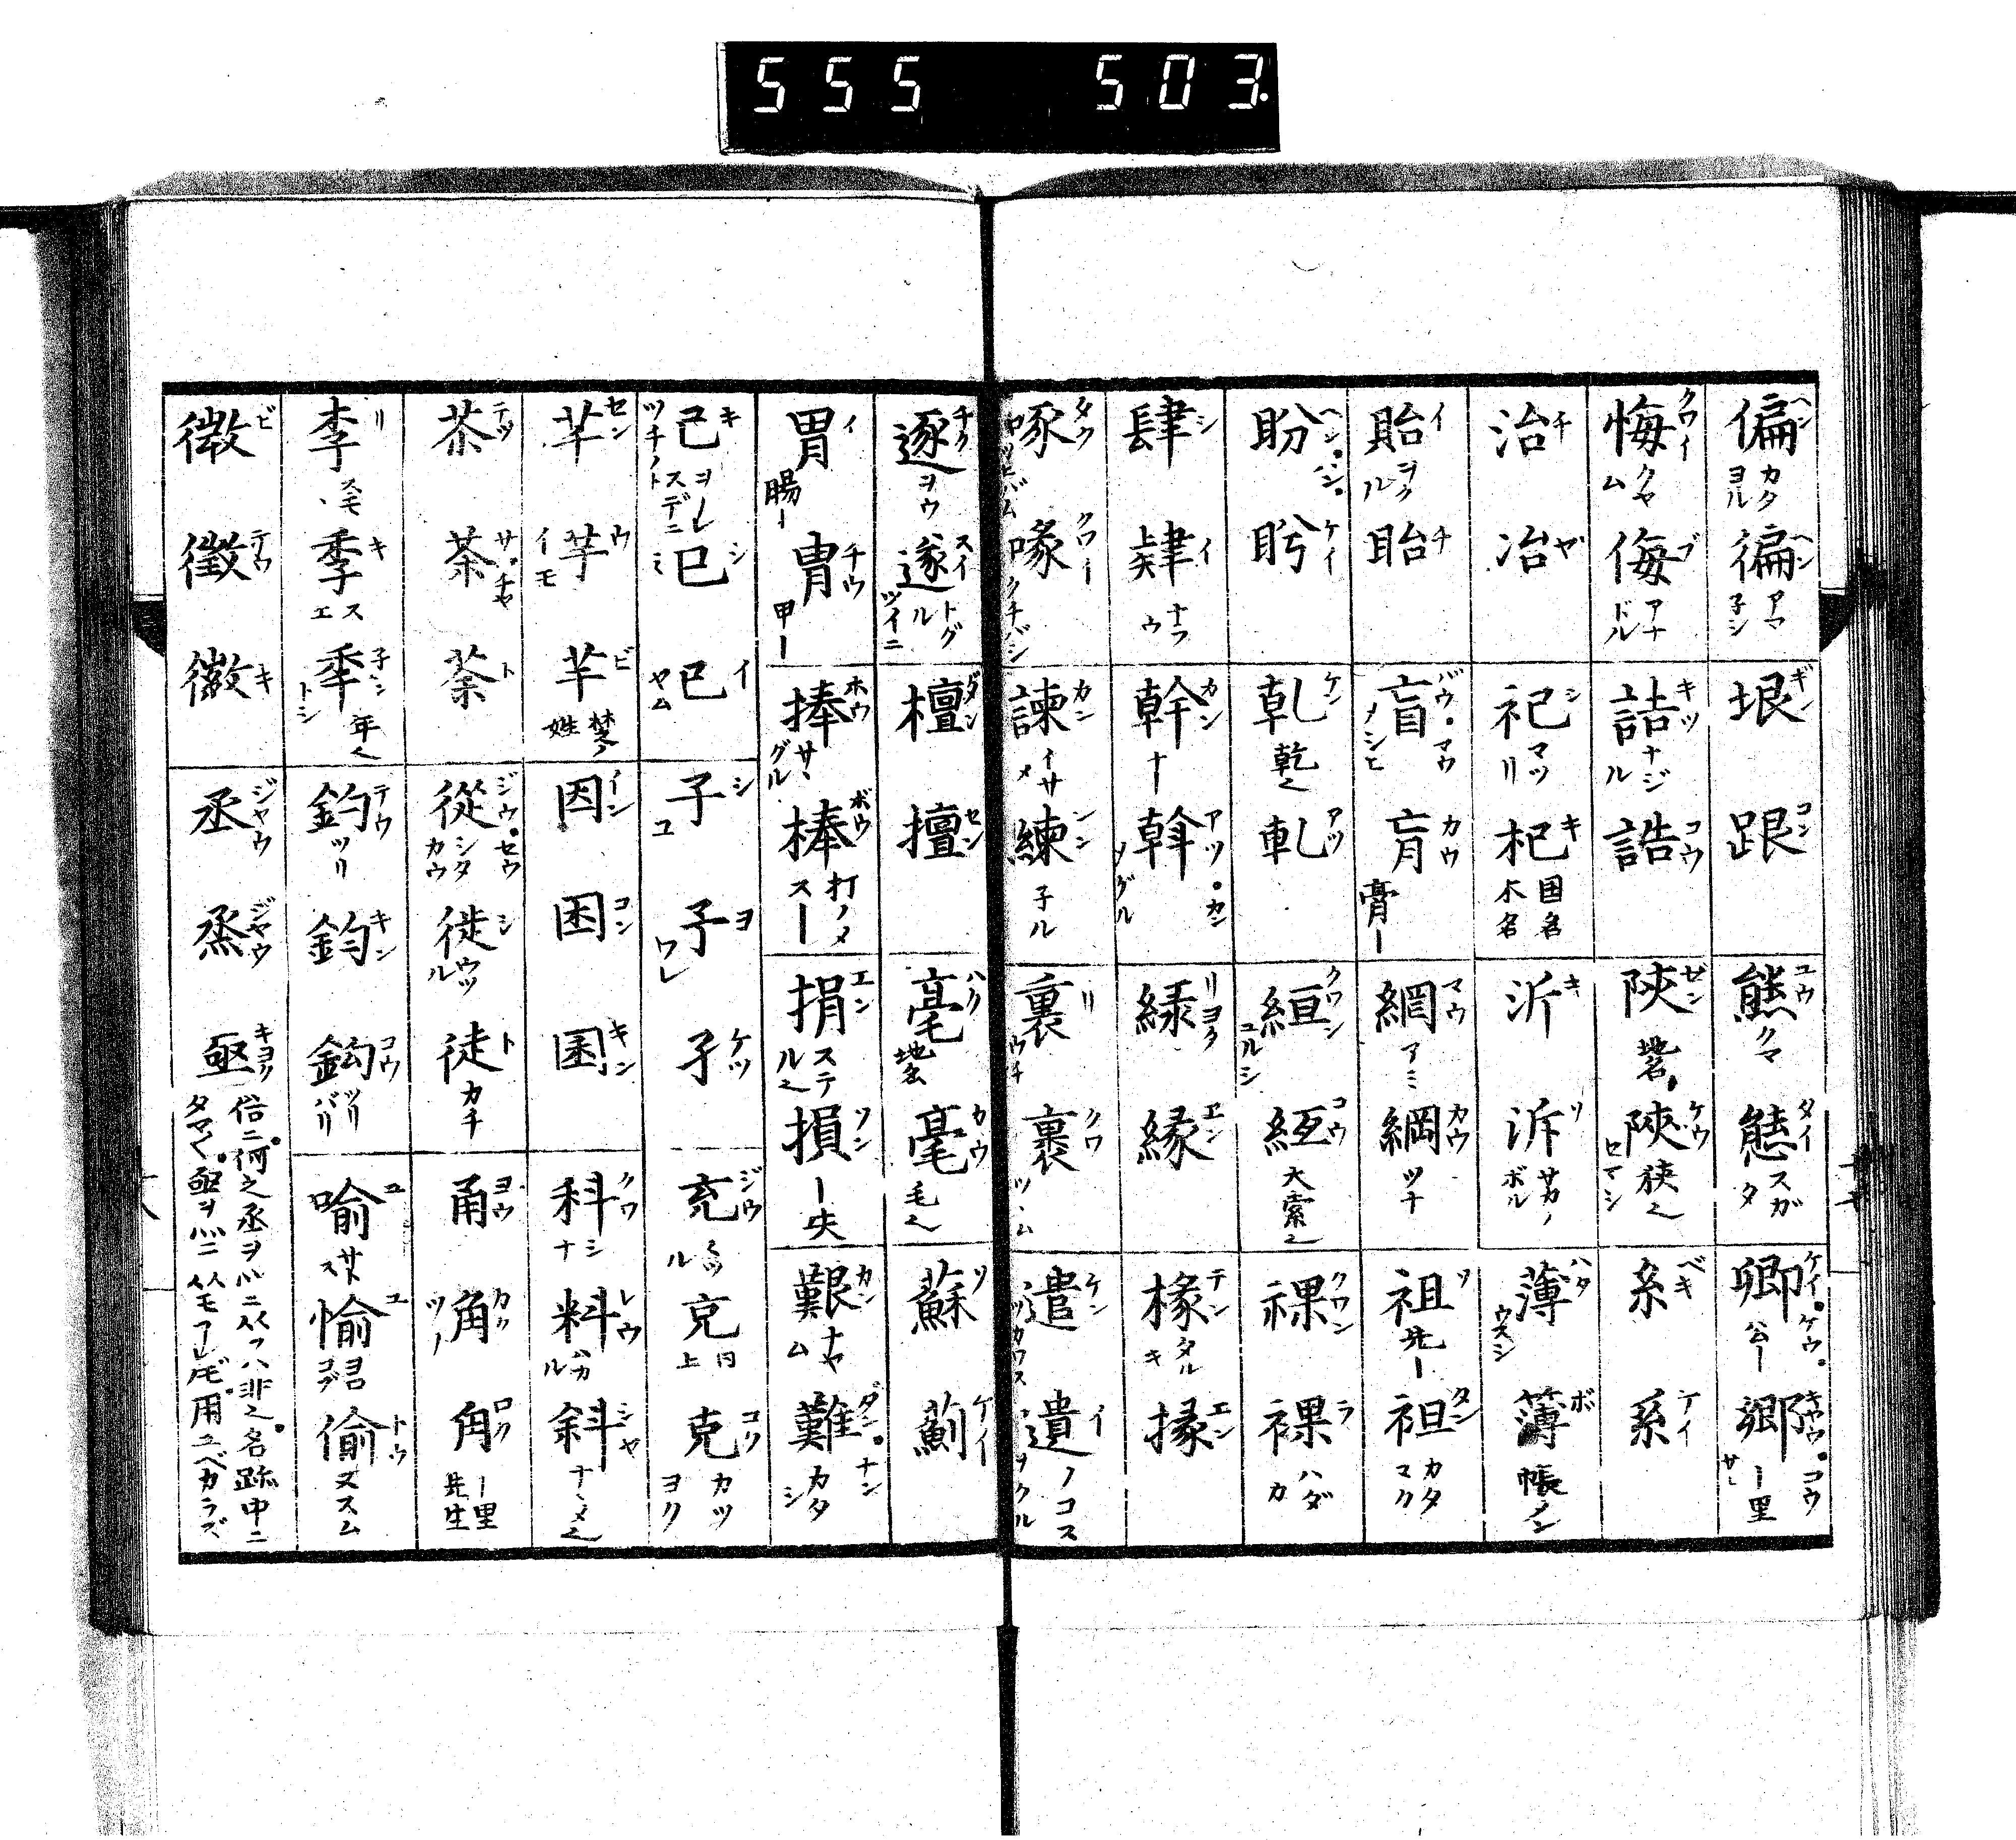 555 503.
偏 ヘン カタヨル 徧 ヘン アマ子シ 垠 ギン 跟 コン 熊 ユウ クマ 態 タイ スガタ 卿 ケイ。ケウ。 公ー 鄕 キヤウ。コウ ー里 サー
悔 クワイ クヤム 侮 ブ アナドル 詰 キツ ナジル 誥 コウ 陝 ゼン 地名。 陜 ケウ 狹也 セマシ 糸 ベキ 系 ケイ
治 チ 冶 ヤ 祀 シ マツリ 杞 キ 国名 木名 沂 キ 泝 ソ サカノボル 薄 ハク ウスシ 簿 ボ 帳メン
貽 イ ヲクル 眙 チ 盲 バウ・マウ メシヒ 肓 カウ 膏ー 網 マウ アミ 綱 カウ ツナ 祖 ソ 先ー 袒 タン カタマク
盼 ヘン。ハン。 盻 ケイ 乹 ケン 乾也 軋 アツ 絙 クワン ユルシ 縆 コウ 大索也 祼 クワン 裸 ラ ハダカ
肆 シ 肄 イ ナラウ 幹 カン ナー 斡 アツ・カン メグル 緑 リヨク 縁 エン 椽 テン タルキ 掾 エン
啄 タク ツイバム 喙 クワイ クチバシ 諫 カン イサメ 練 レン 子ル 裏 リ ウチ 裹 クワ ツヽム 遣 ケン ツカワス 遺 イ ノコス ヲクル
逐 チク ヲウ 遂 スイ トグル ツイニ 檀 ダン 擅 セン 亳 ハク 地名 毫 カウ 毛也 蘇 ソ 薊 ケイ
胃 イ 腸ー 冑 チウ 甲ー 捧 ホウ サヽグル 棒 ボウ 打ノメスー 捐 エン ステル也 損 ソン ー失 艱 カン ナヤム 難 ダン。ナン カタシ
己 キ ヲノレ ツチノト 已 スデニ 巳 シ ミ 已 イ ヤム 子 シ コ 予 ヨ ワレ 孑 ケツ 充 ジウ ミツル 兗 同上 克 コク カツ ヨク
芊 セン 芋 ウ イモ 芈 ビ 楚ノ姓 因 イン 困 コン 囷 キン 科 クワ シナ 料 レウ ハカル 斜 シヤ ナヽメ也
荼 テツ 茶 サ・チヤ 荼 ト 從 ジウ・セウ シタカウ 徙 シ ウツル 徒 ト カチ 甬 ヨウ 角 カク ツノ 甪 ロク ー里先生
李 リ スモヽ 季 キ スエ 秊 子ン トシ 年也 釣 テウ ツリ 鈞 キン 鉤 コウ ツリバリ 喩 ユ サトス 愉 ユ ヨロコブ 偸 トウ ヌスム
微 ビ 徵 テウ 徽 キ 丞 ジヤウ 烝 ジヤウ 亟 キヨク 俗ニ何之丞ヲ亟ニ从フハ非也名跡中ニタマ〱亟ヲ